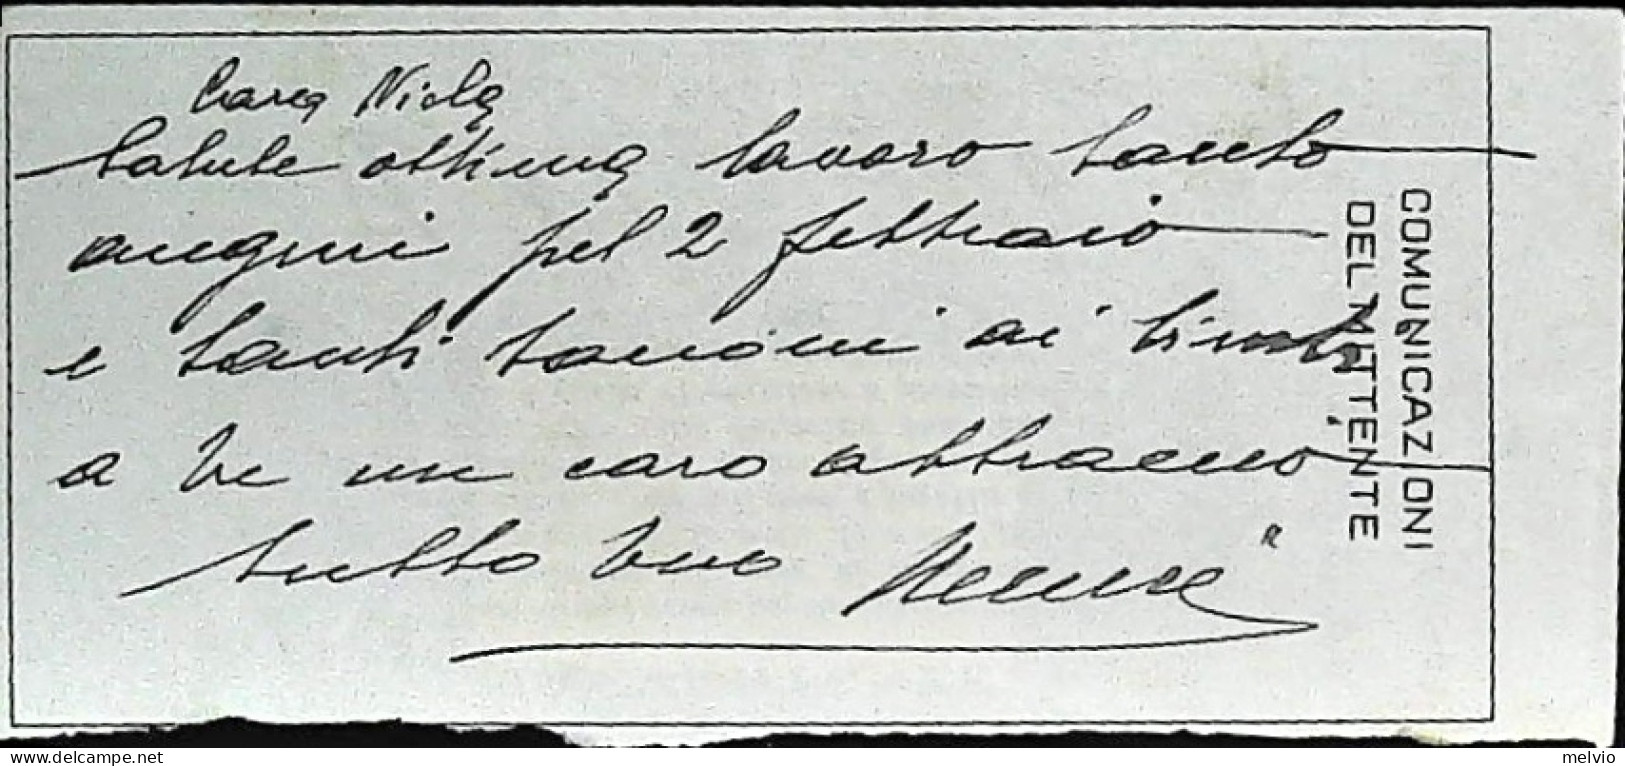 Cara Nicla
Salute ottima lavoro tanto
auguri pel 2 febbraio
e tanti bacioni ai bimbi
a te un caro abbraccio
tutto tuo
COMUNICAZIONI
DEL MITTENTE
delcampe.net
melvio